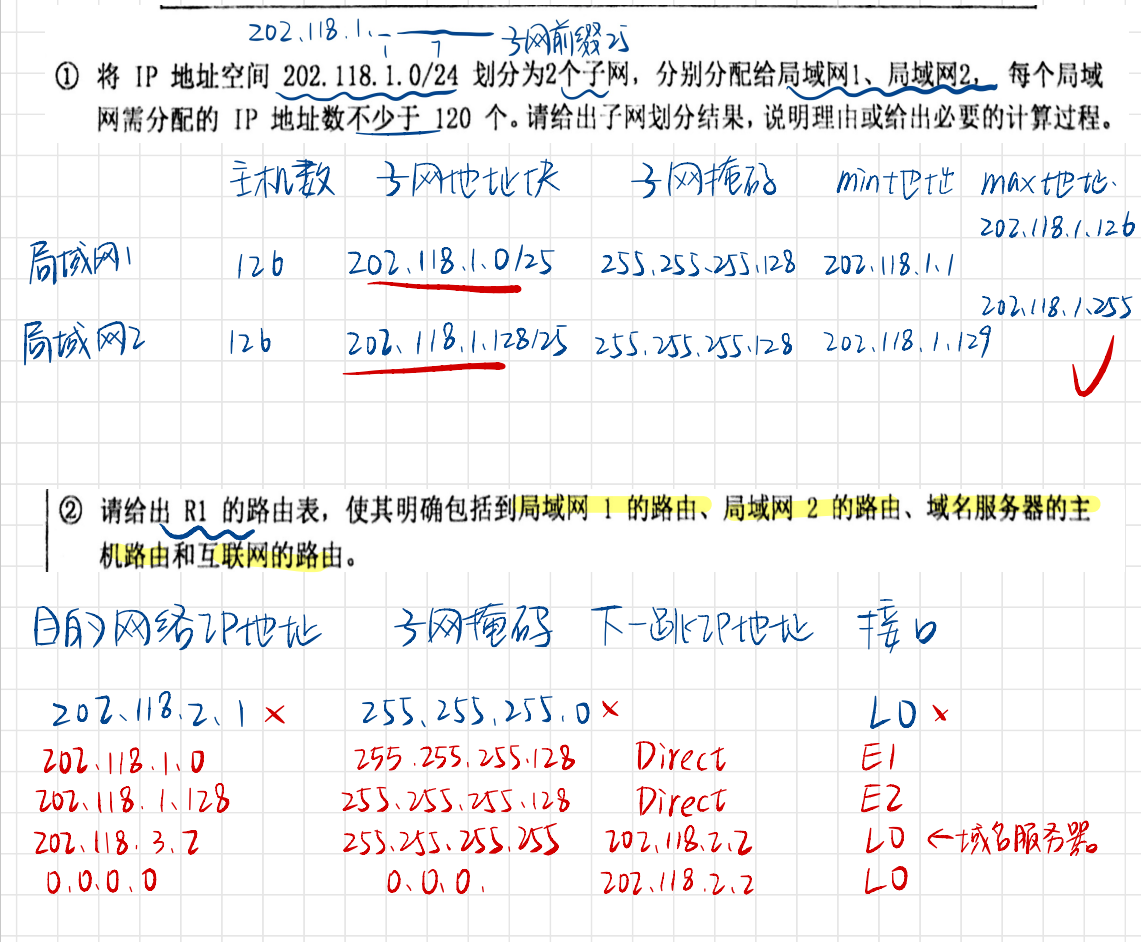 202.118.1. 子网前缀25
1 7
① 将 IP 地址空间 202.118.1.0/24 划分为2个子网，分别分配给局域网1、局域网2，每个局域
网需分配的 IP 地址数不少于 120 个。请给出子网划分结果，说明理由或给出必要的计算过程。
主机数 子网地址块 子网掩码 min地址 max地址.
202.118.1.126
局域网1 126 202.118.1.0/25 255.255.255.128 202.118.1.1
202.118.1.255
局域网2 126 202.118.1.128/25 255.255.255.128 202.118.1.129
② 请给出 R1 的路由表，使其明确包括到局域网 1 的路由、局域网 2 的路由、域名服务器的主
机路由和互联网的路由。
目的网络IP地址 子网掩码 下一跳IP地址 接口
202.118.2.1 × 255.255.255.0 × L0 ×
202.118.1.0 255.255.255.128 Direct E1
202.118.1.128 255.255.255.128 Direct E2
202.118.3.2 255.255.255.255 202.118.2.2 L0 ←域名服务器。
0.0.0.0 0.0.0. 202.118.2.2 L0